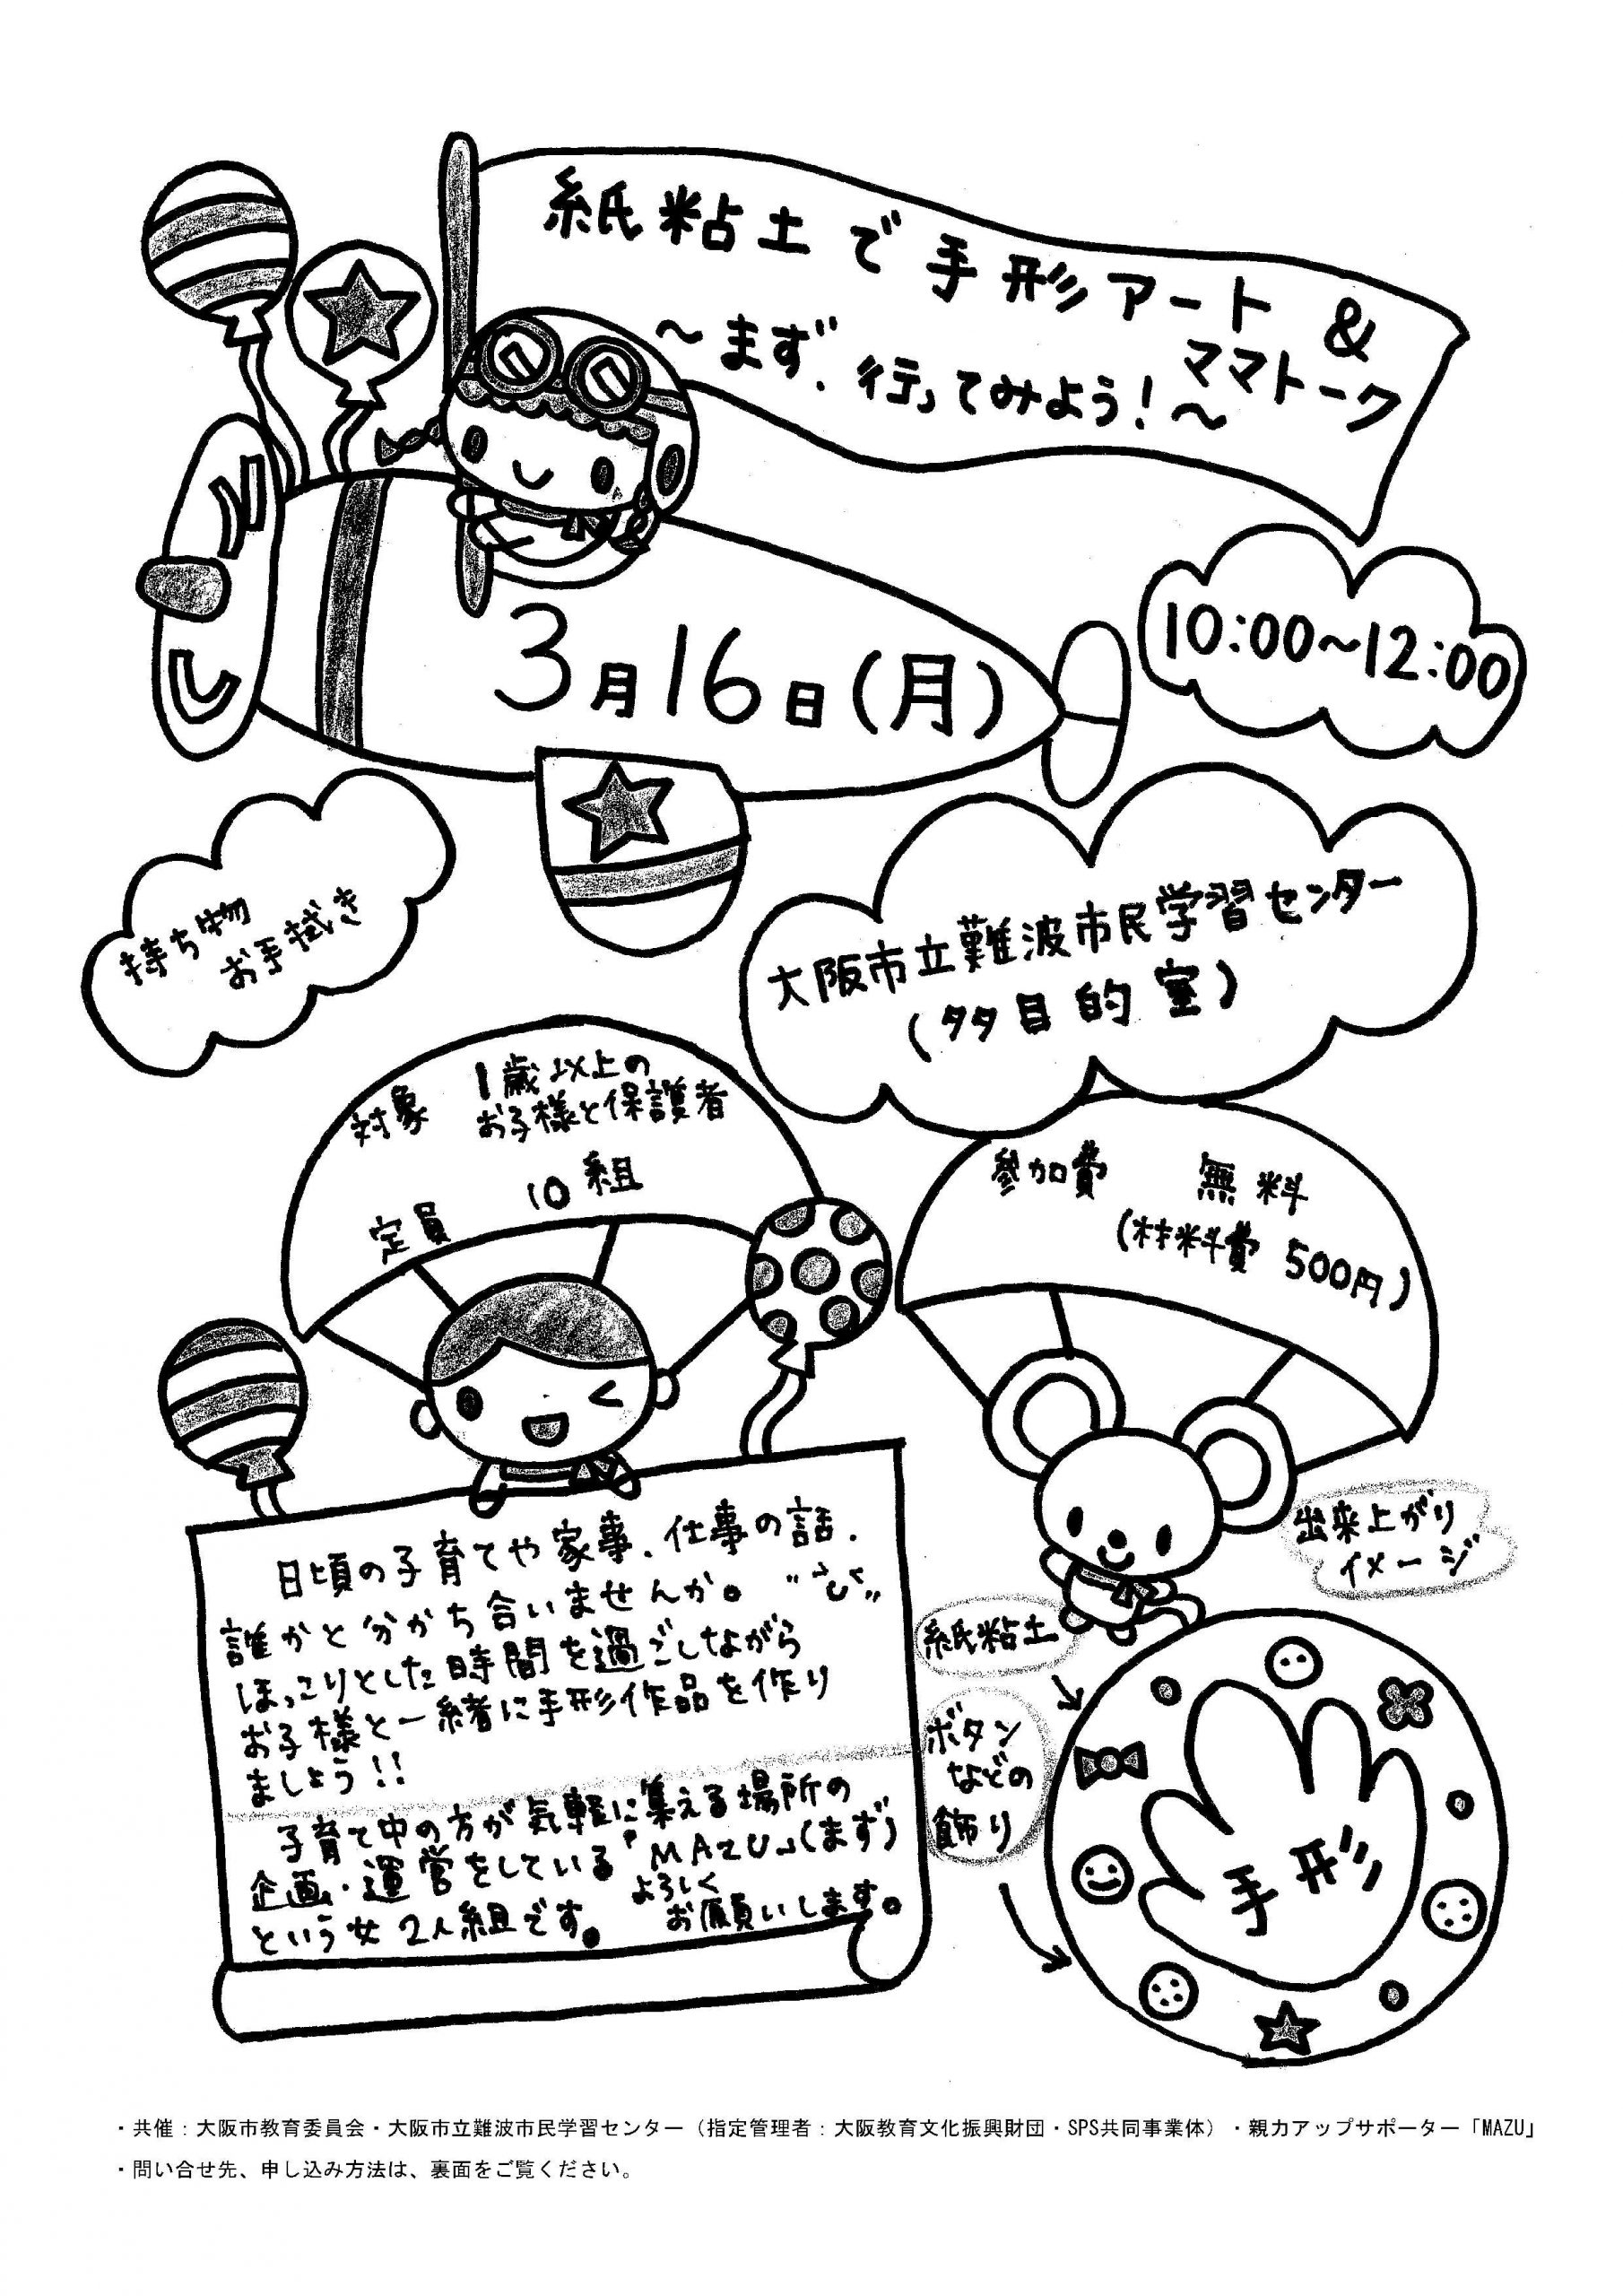 紙粘土で手形アート&
ママトーク
〜まず、行ってみよう!〜
3月16日(月)
10:00〜12:00
持ち物
お手拭き
大阪市立難波市民学習センター
(多目的室)
対象 1歳以上の
お子様と保護者
定員 10組
参加費 無料
(材料費 500円)
日頃の子育てや家事、仕事の話、
誰かと分かち合いませんか。
ほっこりとした時間を過ごしながら
お子様と一緒に手形作品を作り
ましょう!!
子育て中の方が気軽に集える場所の
企画・運営をしている「MAZU」(まず)
という女2人組です。よろしく
お願いします。
出来上がり
イメージ
紙粘土
ボタン
などの
飾り
手形
・共催:大阪市教育委員会・大阪市立難波市民学習センター(指定管理者:大阪教育文化振興財団・SPS共同事業体)・親力アップサポーター「MAZU」
・問い合せ先、申し込み方法は、裏面をご覧ください。